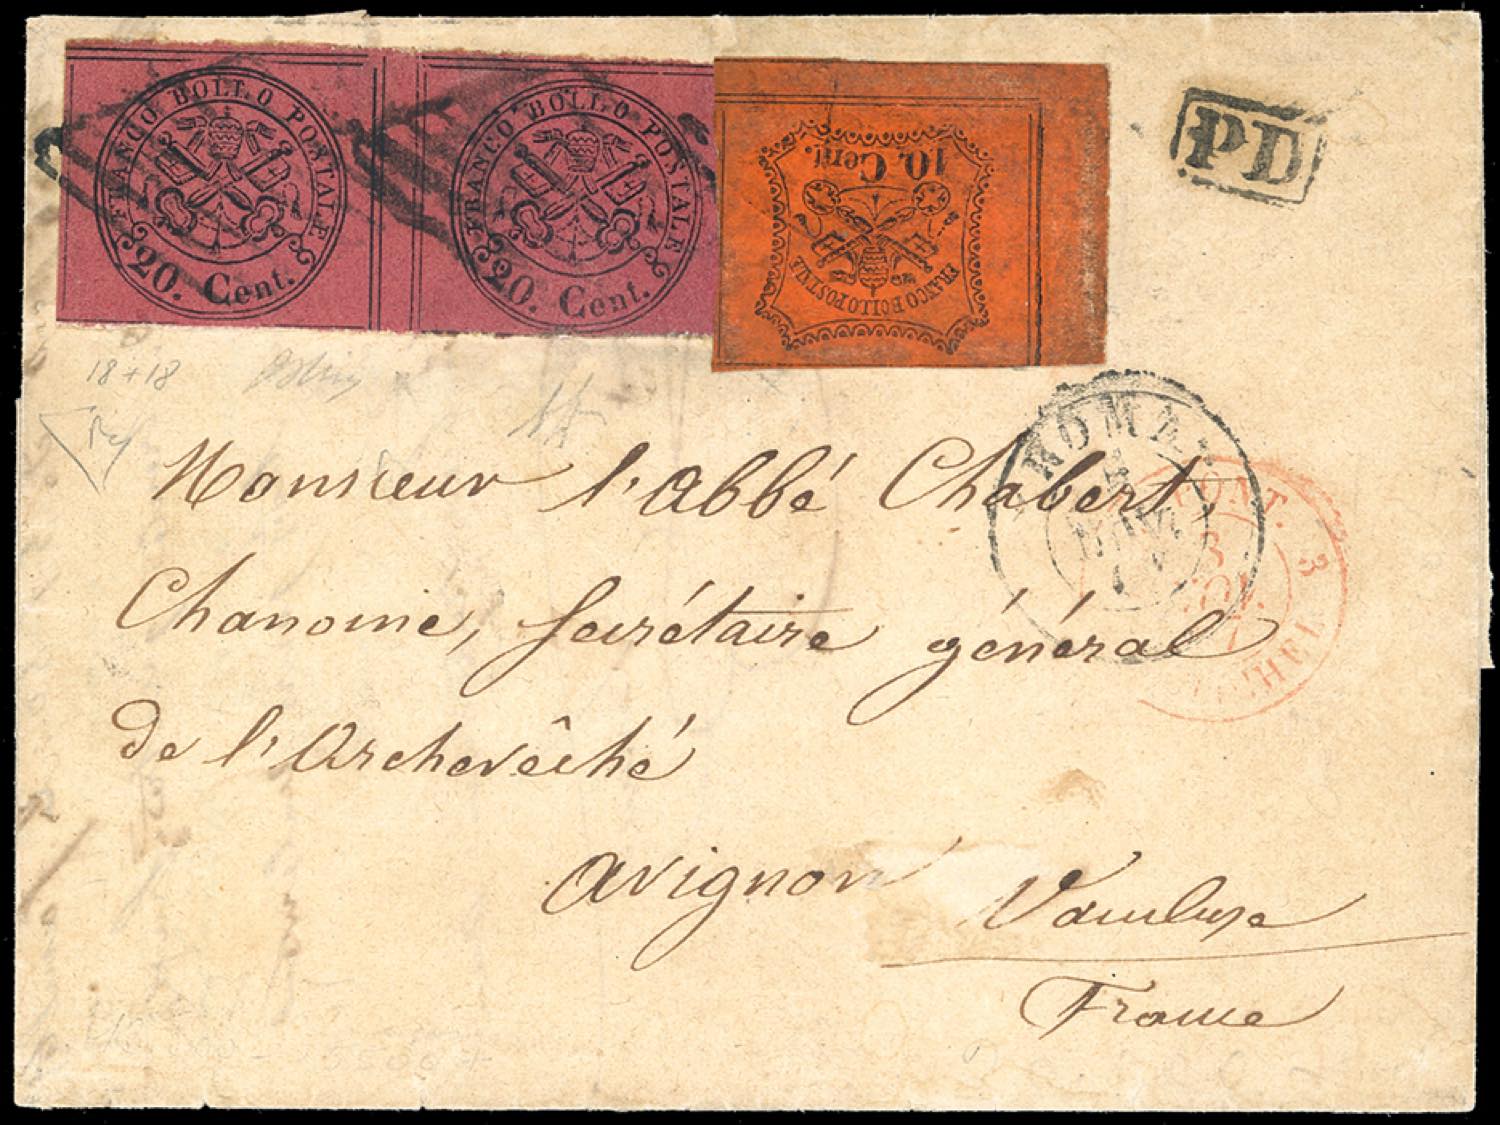 FRANCO BOLLO POSTALE
20. Cent.
FRANCO BOLLO POSTALE
20. Cent.
10. Cent.
FRANCO BOLLO POSTALE
PD
18+18
ROME
NOV.
PONT.
3
3
Monsieur l'Abbé Chabert,
Chanoine, Secrétaire général
de l'Archevêché
Avignon Vaucluse
France